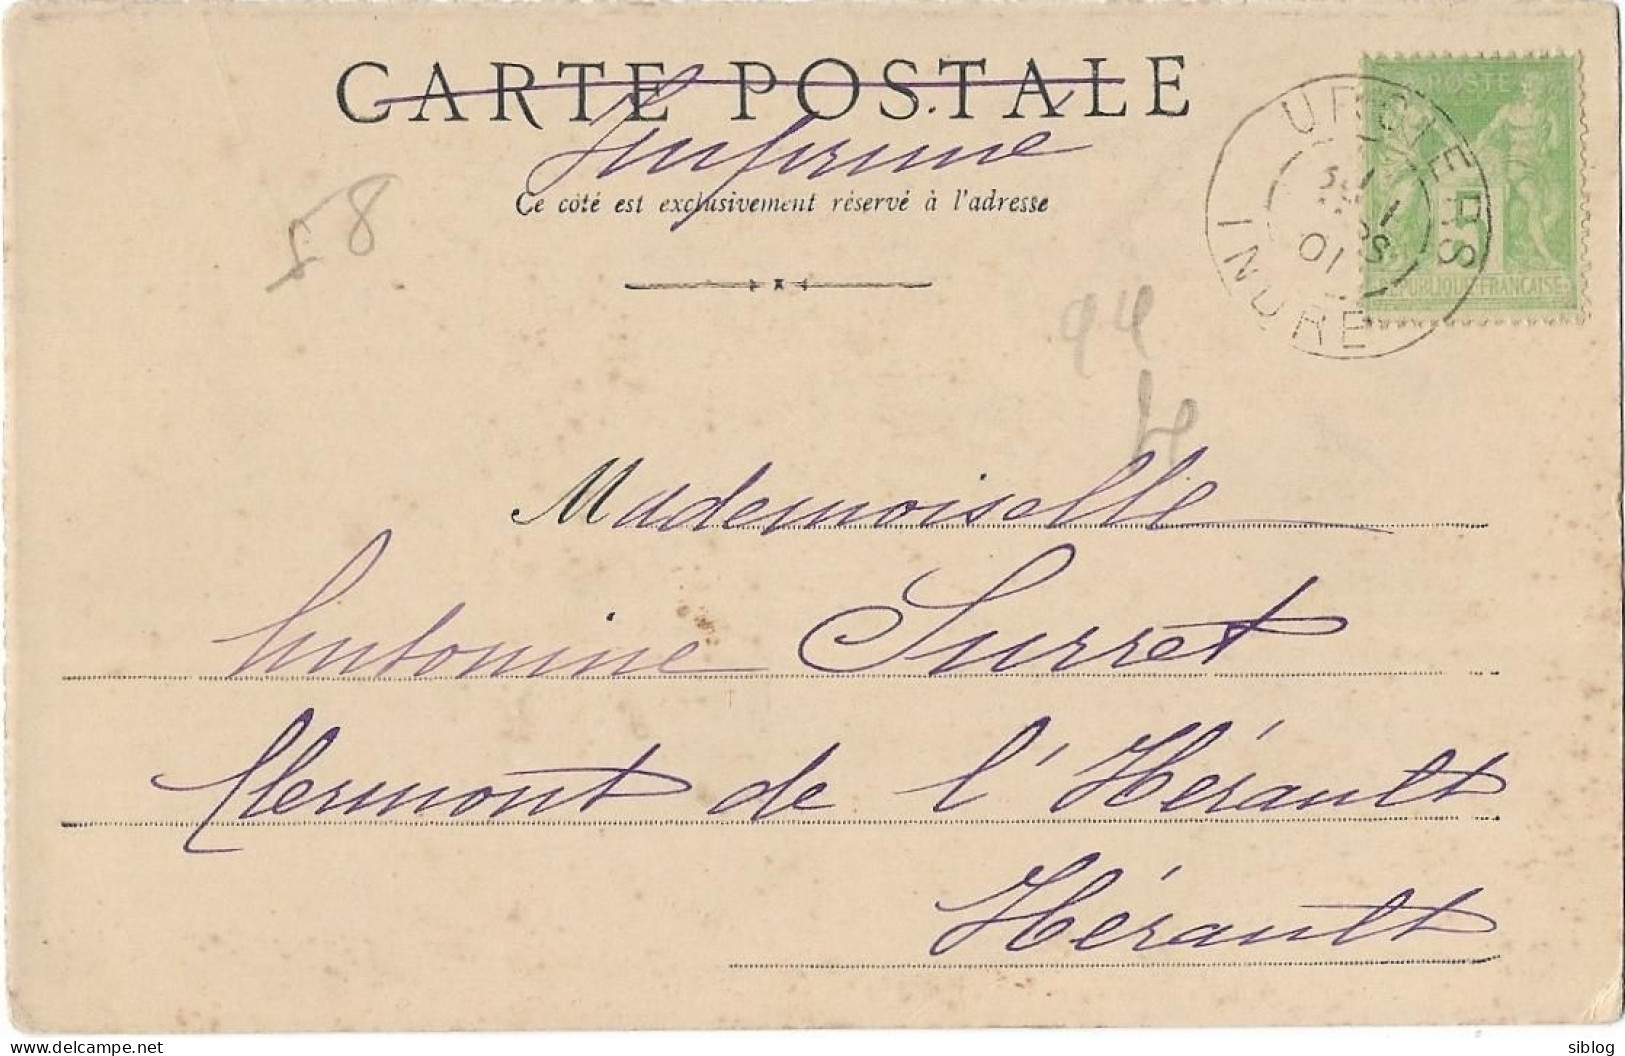 CARTE POSTALE
Imprimé
Ce côté est exclusivement réservé à l'adresse
58
94
POSTE
5
RÉPUBLIQUE FRANÇAISE
URCIERS
INDRE
01
Mademoiselle
Antonine Surret
Clermont de l'Hérault
Hérault
delcampe.net
siblog